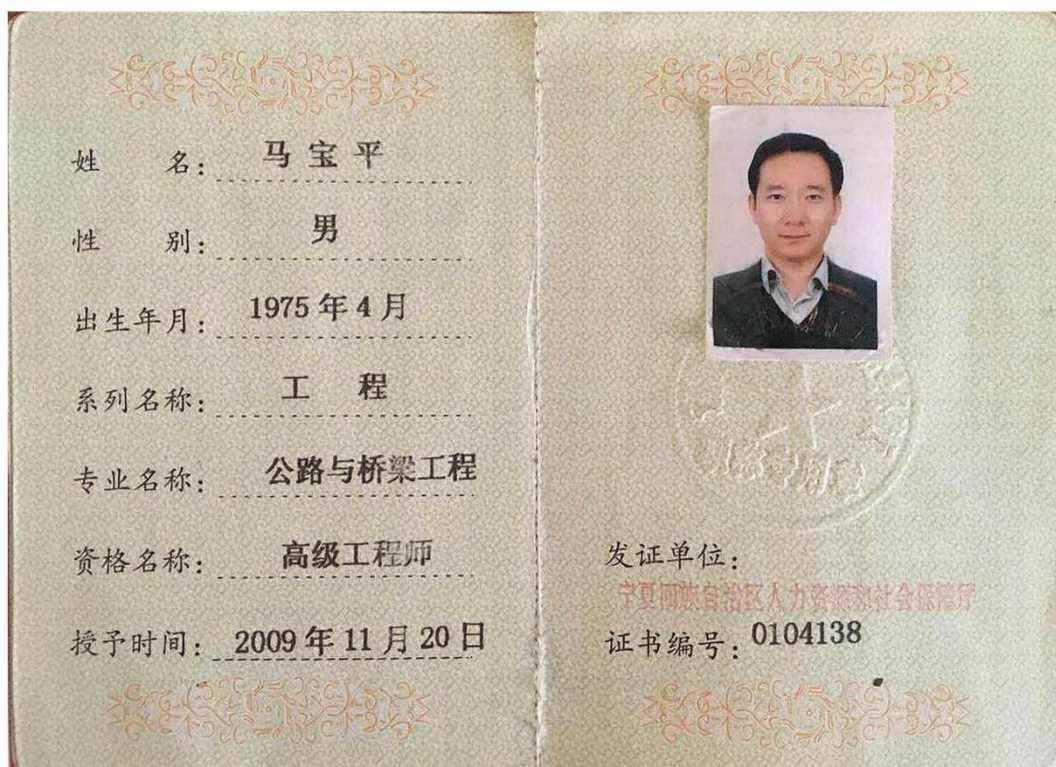 姓 名： 马宝平
性 别： 男
出生年月： 1975年4月
系列名称： 工 程
专业名称： 公路与桥梁工程
资格名称： 高级工程师
授予时间： 2009年11月20日
发证单位：
宁夏回族自治区人力资源和社会保障厅
证书编号：0104138